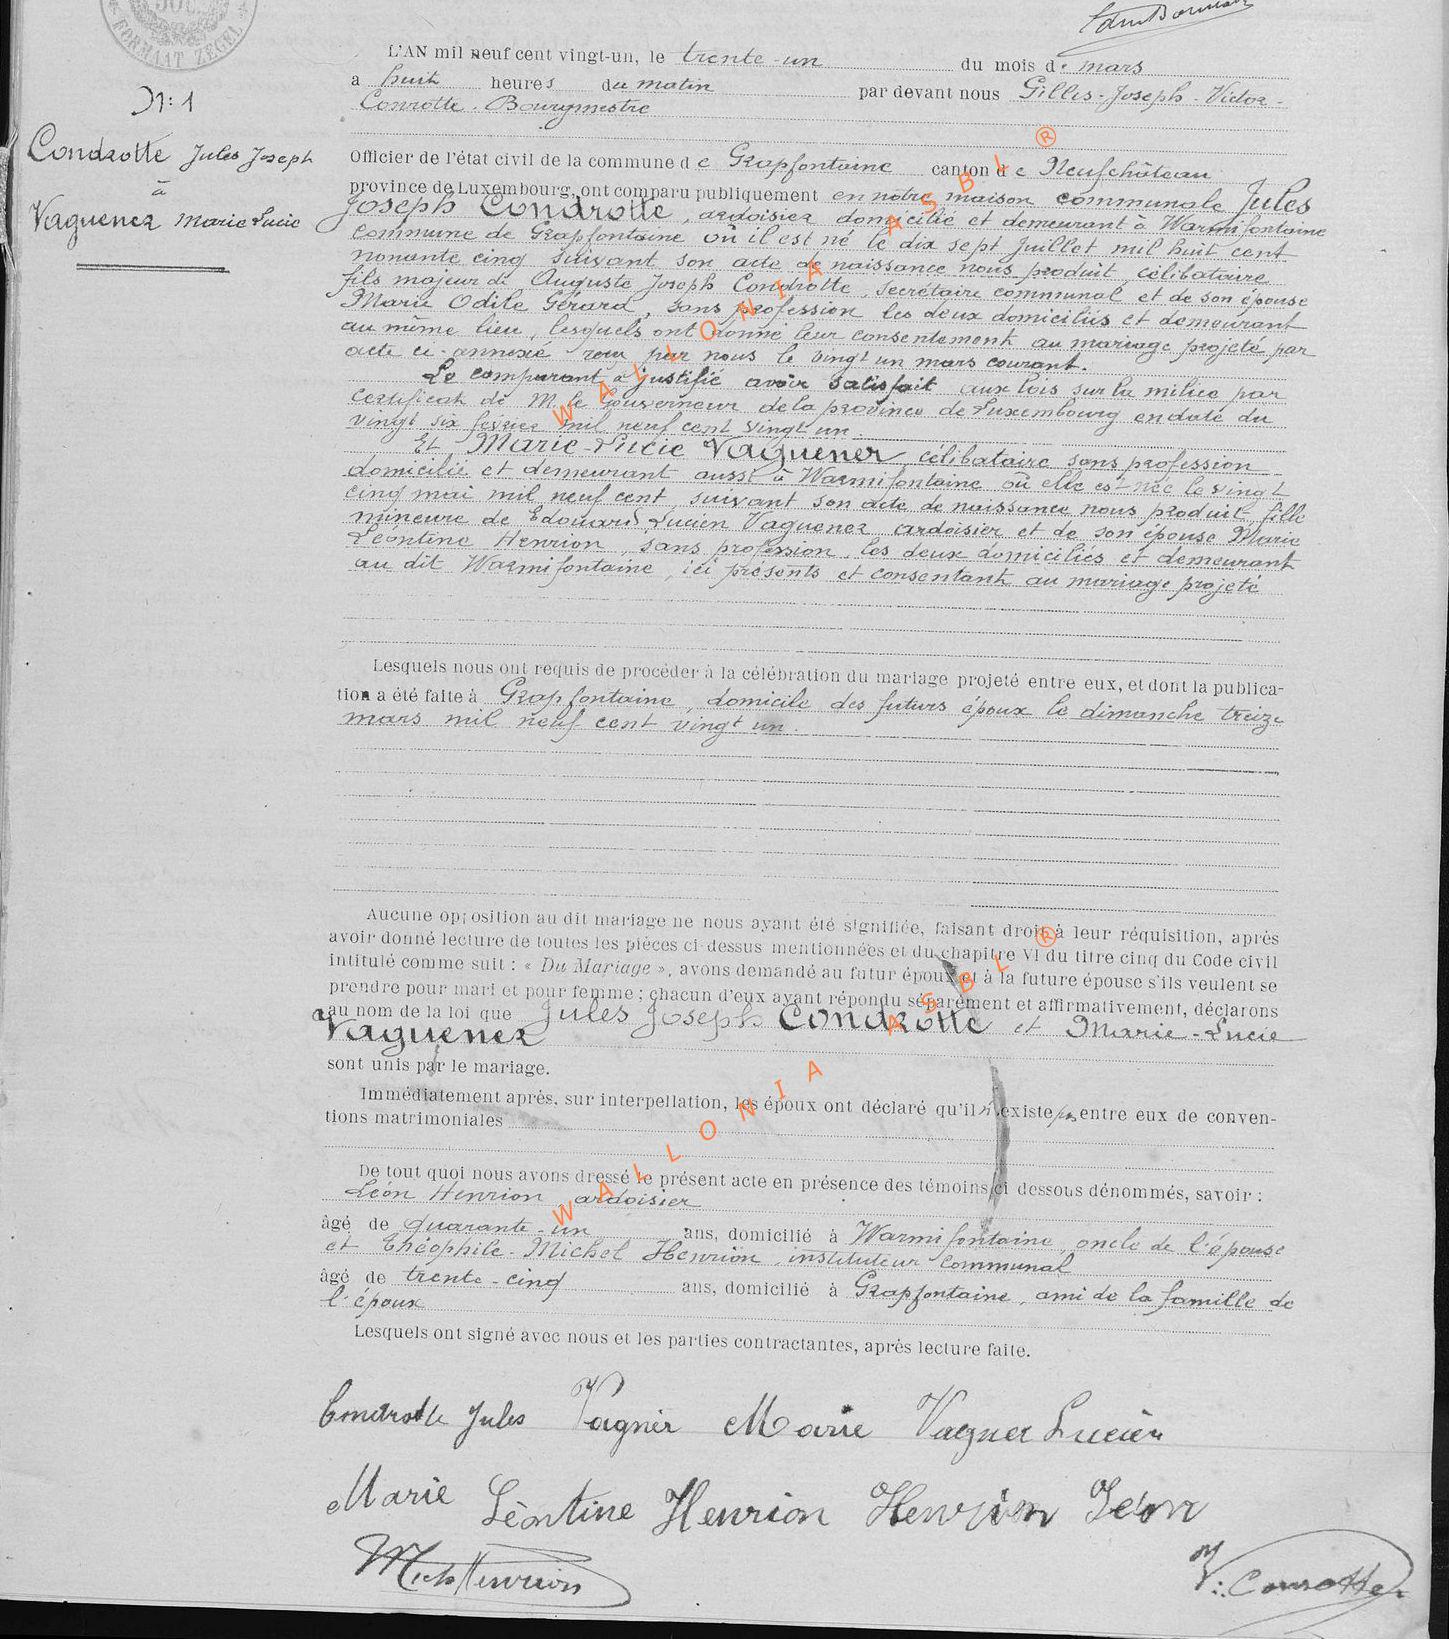 FORMAAT ZEGEL
L'AN mil neuf cent vingt-un, le trente-un du mois de mars
a huit heures du matin par devant nous Gilles-Joseph-Victor-
Conrotte Bourgmestre
N: 1
Condrotte Jules Joseph
à
Vaguener Marie Lucie
Officier de l'état civil de la commune de Grapfontaine canton de Neufchâteau
province de Luxembourg, ont comparu publiquement en notre maison communale Jules
Joseph Condrotte, ardoisier domicilié et demeurant à Warmifontaine
commune de Grapfontaine où il est né le dix sept Juillet mil huit cent
nonante cinq suivant son acte de naissance nous produit, célibataire,
fils majeur de Auguste Joseph Condrotte, secrétaire communal et de son épouse
Marie Odile Gérard, sans profession les deux domiciliés et demeurant
au même lieu, lesquels ont donné leur consentement au mariage projeté par
acte ci-annexé reçu par nous le vingt un mars courant.
Le comparant a justifié avoir satisfait aux lois sur la milice par
certificat de M. le Gouverneur de la province de Luxembourg en date du
vingt six février mil neuf cent vingt un
Et Marie-Lucie Vaguener célibataire sans profession
domicilié et demeurant aussi à Warmifontaine où elle est née le vingt
cinq mai mil neuf cent, suivant son acte de naissance nous produit, fille
mineure de Edouard Lucien Vaguener ardoisier et de son épouse Marie
Léontine Henrion, sans profession, les deux domiciliés et demeurant
au dit Warmifontaine, ici présents et consentant au mariage projeté
Lesquels nous ont requis de procéder à la célébration du mariage projeté entre eux, et dont la publica-
tion a été faite à Grapfontaine, domicile des futurs époux le dimanche treize
mars mil neuf cent vingt un.
Aucune opposition au dit mariage ne nous ayant été signifiée, faisant droit à leur réquisition, après
avoir donné lecture de toutes les pièces ci-dessus mentionnées et du chapitre VI du titre cinq du Code civil
intitulé comme suit : « Du Mariage », avons demandé au futur époux et à la future épouse s'ils veulent se
prendre pour mari et pour femme ; chacun d'eux ayant répondu séparément et affirmativement, déclarons
au nom de la loi que Jules Joseph Condrotte et Marie-Lucie
Vaguener
sont unis par le mariage.
Immédiatement après, sur interpellation, les époux ont déclaré qu'il n'existe pas entre eux de conven-
tions matrimoniales
De tout quoi nous avons dressé le présent acte en présence des témoins ci dessous dénommés, savoir :
Léon Henrion ardoisier
âgé de quarante-un ans, domicilié à Warmifontaine, oncle de l'épouse
et Théophile-Michel Henrion, instituteur communal
âgé de trente-cinq ans, domicilié à Grapfontaine, ami de la famille de
l'époux
Lesquels ont signé avec nous et les parties contractantes, après lecture faite.
Condrotte Jules Vagner Marie Vagner Lucien
Marie Léontine Henrion Henrion Léon
Mich Henrion V: Conrotte
WALLONIA ASBL ®
WALLONIA ASBL ®